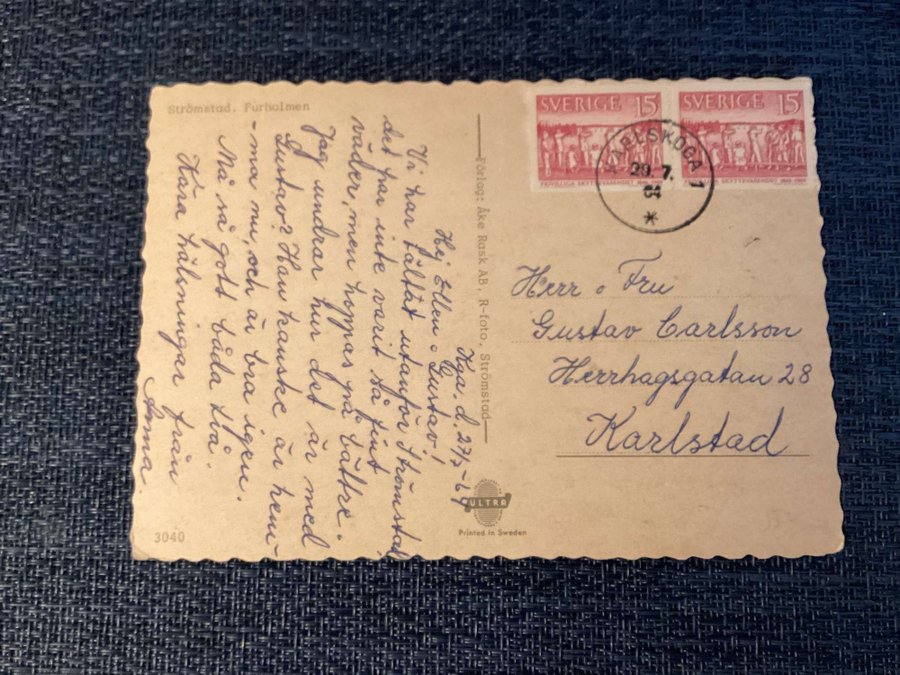 Strömstad. Furholmen
SVERIGE 15
SVERIGE 15
FRIVILLIGA SKYTTEVÄSENDET
SKYTTEVÄSENDET
KARLSKOGA 1
29. 7.
*
Kga. d. 27/7-64
Hej Ellen o Gustav!
Vi har tältat utanför Strömstad,
det har inte varit så fint
väder, men hoppas på bättre.
Jag undrar hur det är med
Gustav? Han kanske är hem-
-ma nu, och är bra igen.
Må så gott båda två.
Kära hälsningar från
Anna.
Förlag: Åke Rask AB, R-foto, Strömstad
Herr o Fru
Gustav Carlsson
Herrhagsgatan 28
Karlstad
ULTRA
Printed in Sweden
3040